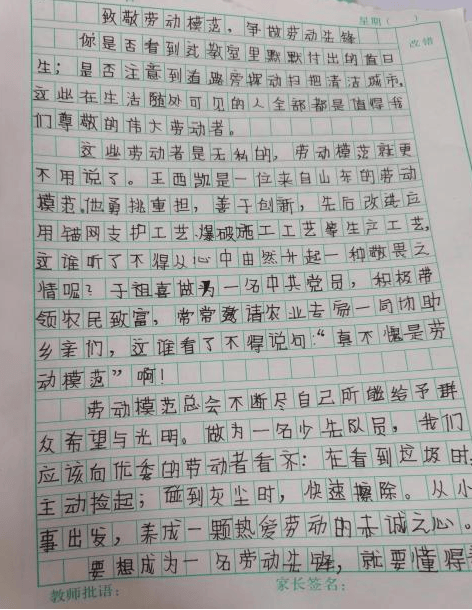 星期（ ）
致敬劳动模范，争做劳动先锋
改错
你是否看到过教室里默默付出的值日
生；是否注意到道路旁挥动扫把清洁城市，
这些在生活随处可见的人全部都是值得我
们尊敬的伟大劳动者。
这些劳动者是无私的，劳动模范就更
不用说了。王西凯是一位来自山东的劳动
模范，他勇挑重担，善于创新，先后改进应
用锚网支护工艺、爆破施工工艺等生产工艺，
这谁听了不得从心中由然升起一种敬畏之
情呢？于祖喜做为一名中共党员，积极带
领农民致富，常常邀请农业专家一同协助
乡亲们，这谁看了不得说句：“真不愧是劳
动模范”啊！
劳动模范总会不断尽自己所能给予群
众希望与光明。做为一名少先队员，我们
应该向优秀的劳动者看齐：在看到垃圾时，
主动捡起；碰到灰尘时，快速擦除。从小
事出发，养成一颗热爱劳动的赤诚之心。
要想成为一名劳动先锋，就要懂得
教师批语： 家长签名：